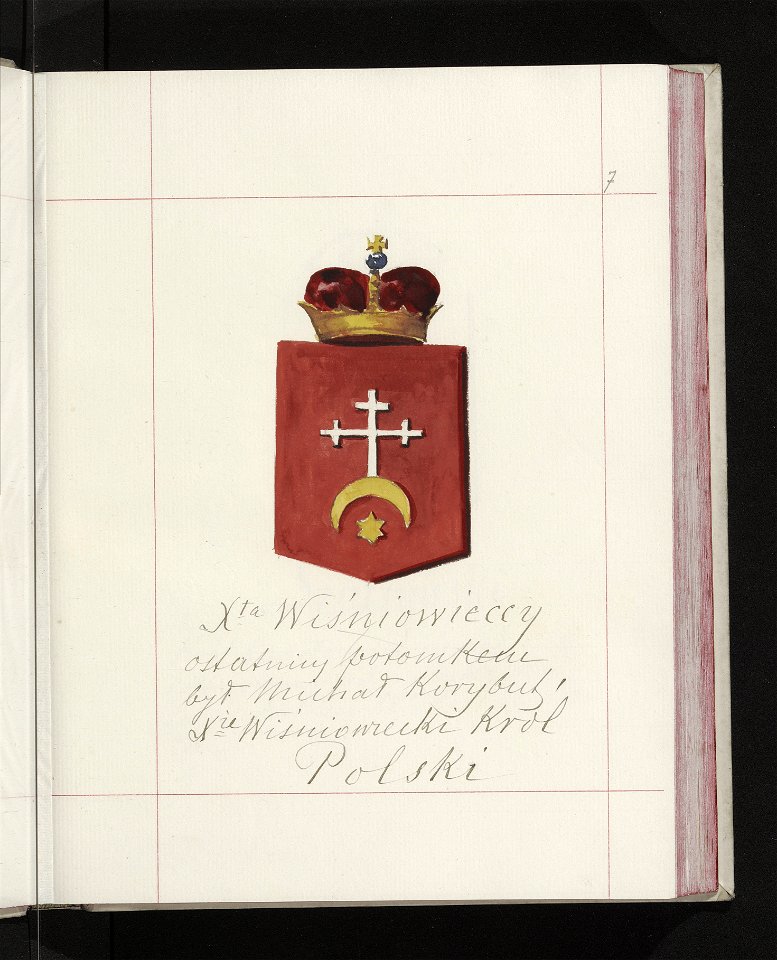 7
Xta Wiśniowieccy
ostatnim potomkem
był Michał Korybut,
Xie Wiśniowiecki Król
Polski